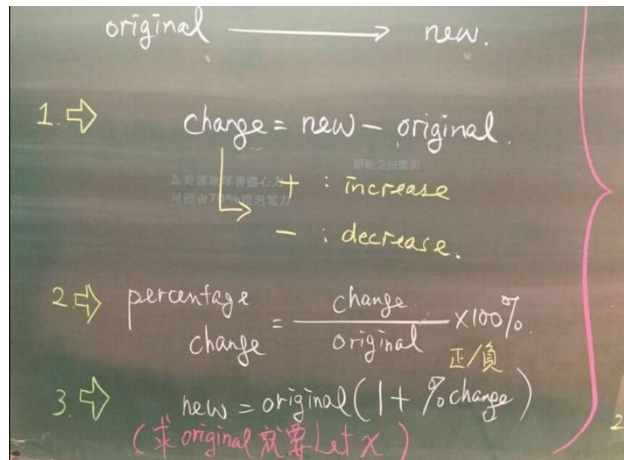 original ⟶ new.
1. ⇨ change = new - original.
+ : increase
- : decrease.
2. ⇨ percentage change = change / original ×100%.
正/負
3. ⇨ new = original(1 + %change)
(求 original 就要 Let x)
2